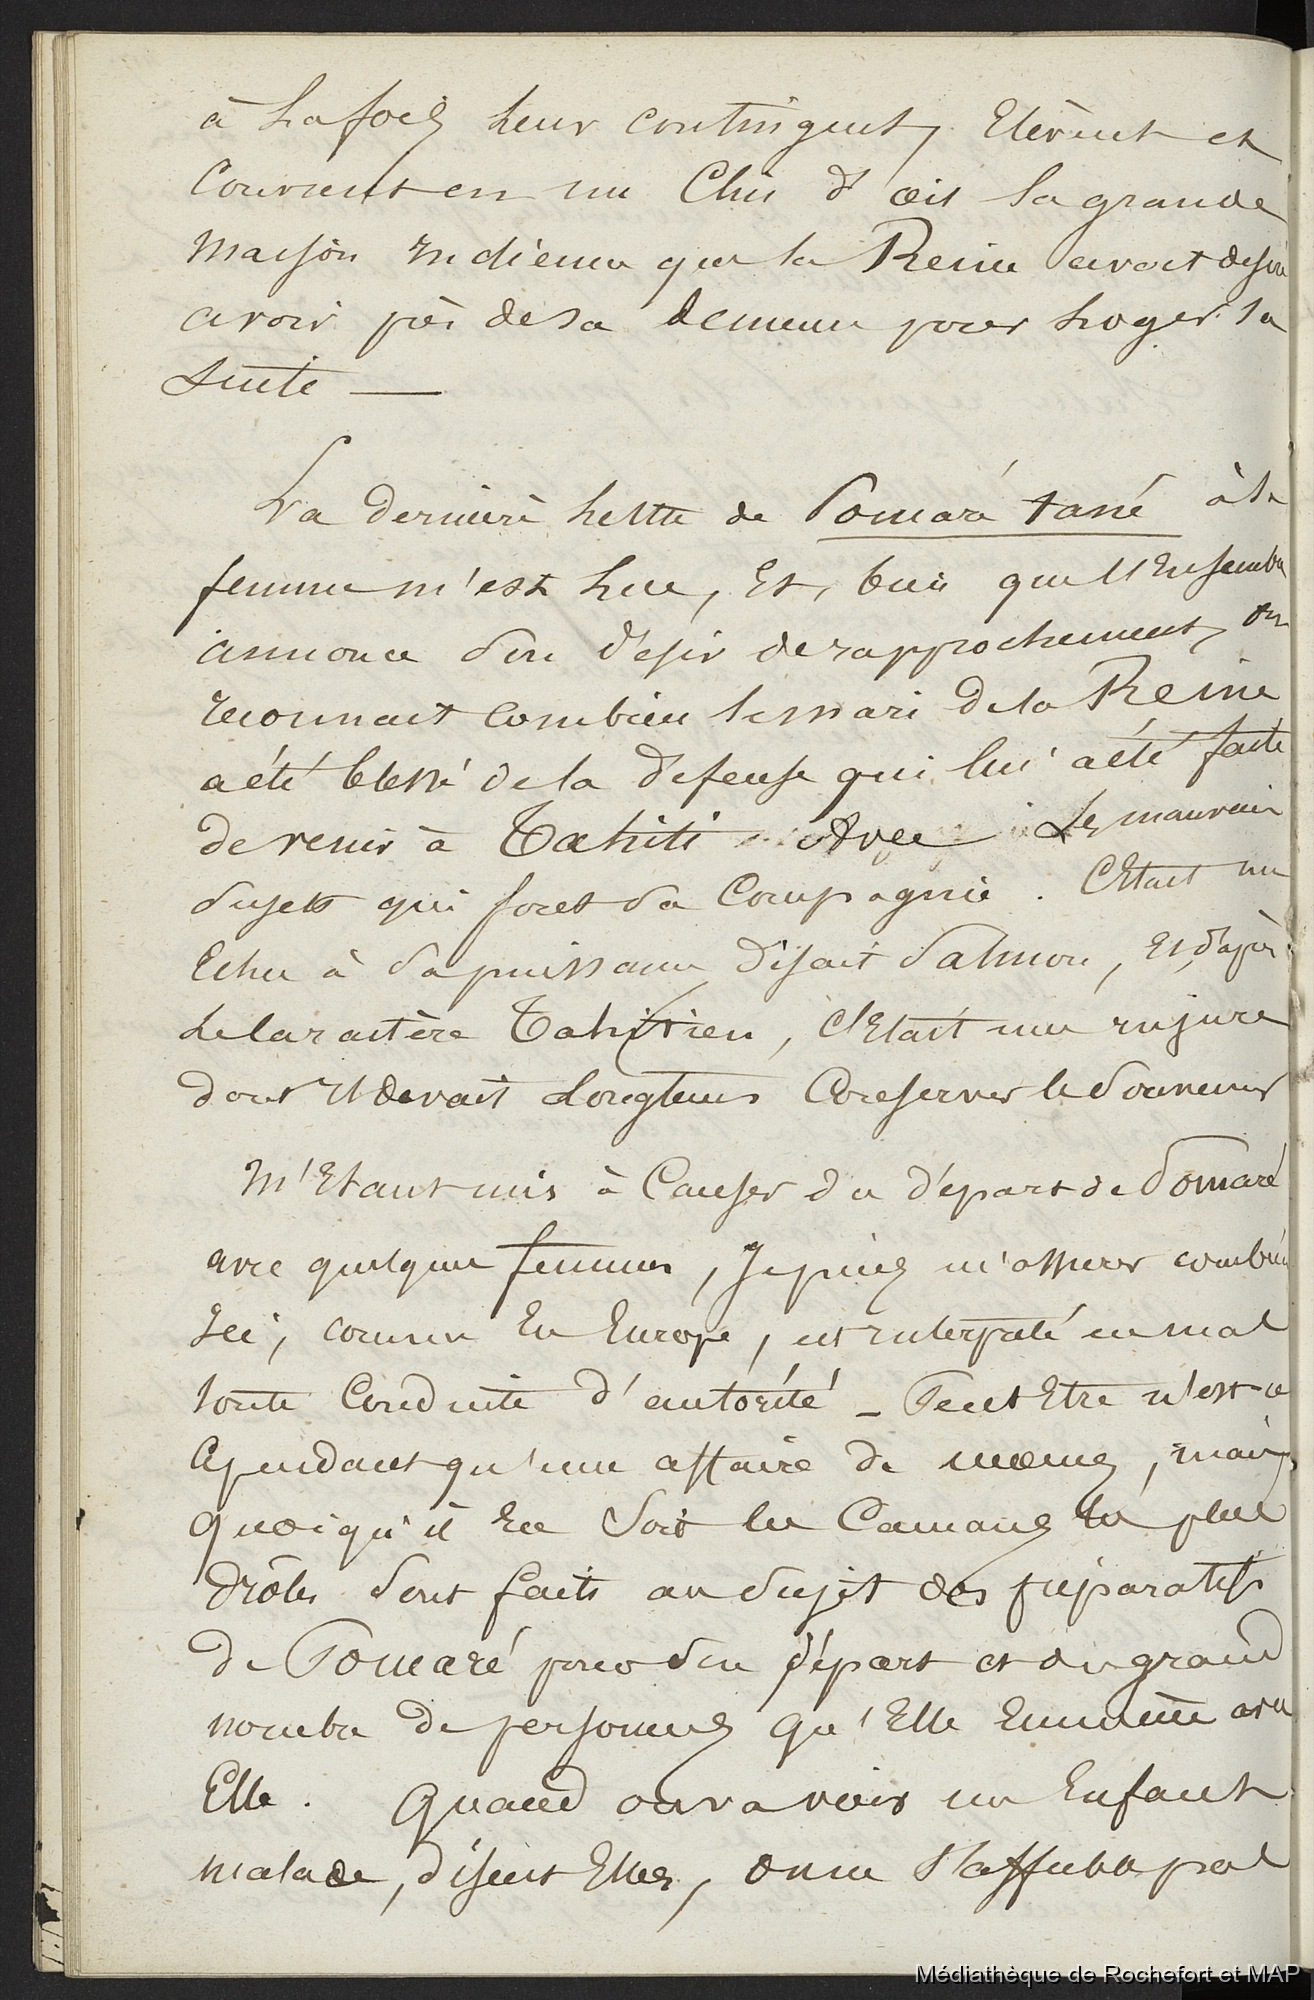 à la fois leur contingent, Elèvent et
Couvrent en un Clin d'œil la grande
Maison indienne que la Reine avait desiré
avoir près de sa demeure pour loger sa
suite —
La dernière lettre de Pomaré tané à sa
femme m'est lue, Et, bien que l'Ensemble
annonce son désir de rapprochement, on
reconnait combien le mari de la Reine
a été blessé de la défense qui lui a été faite
de venir à Tahiti avec les mauvais
sujets qui font sa Compagnie. C'Etait un
Echec à sa puissance disait Salmon, Et d'après
le Caractère Tahitien, C'Etait une injure
dont Il devait longtems Conserver le souvenir
M'Etant mis à Causer du départ de Pomaré
avec quelques femmes, Je puis m'assurer combien
Ici, comme En Europe, est interprété en mal
toute Conduite d'autorité – Peut Etre n'est-ce
Cependant qu'une affaire de mœurs, mais
quoiqu'il En soit les Cancans les plus
drôles sont faits au sujet des préparatifs
de Pomaré pour son départ et du grand
nombre de personnes qu'Elle Emmène avec
Elle. Quand on va voir un Enfant
malade, disent Elles, on ne s'affuble pas
Médiathèque de Rochefort et MAP